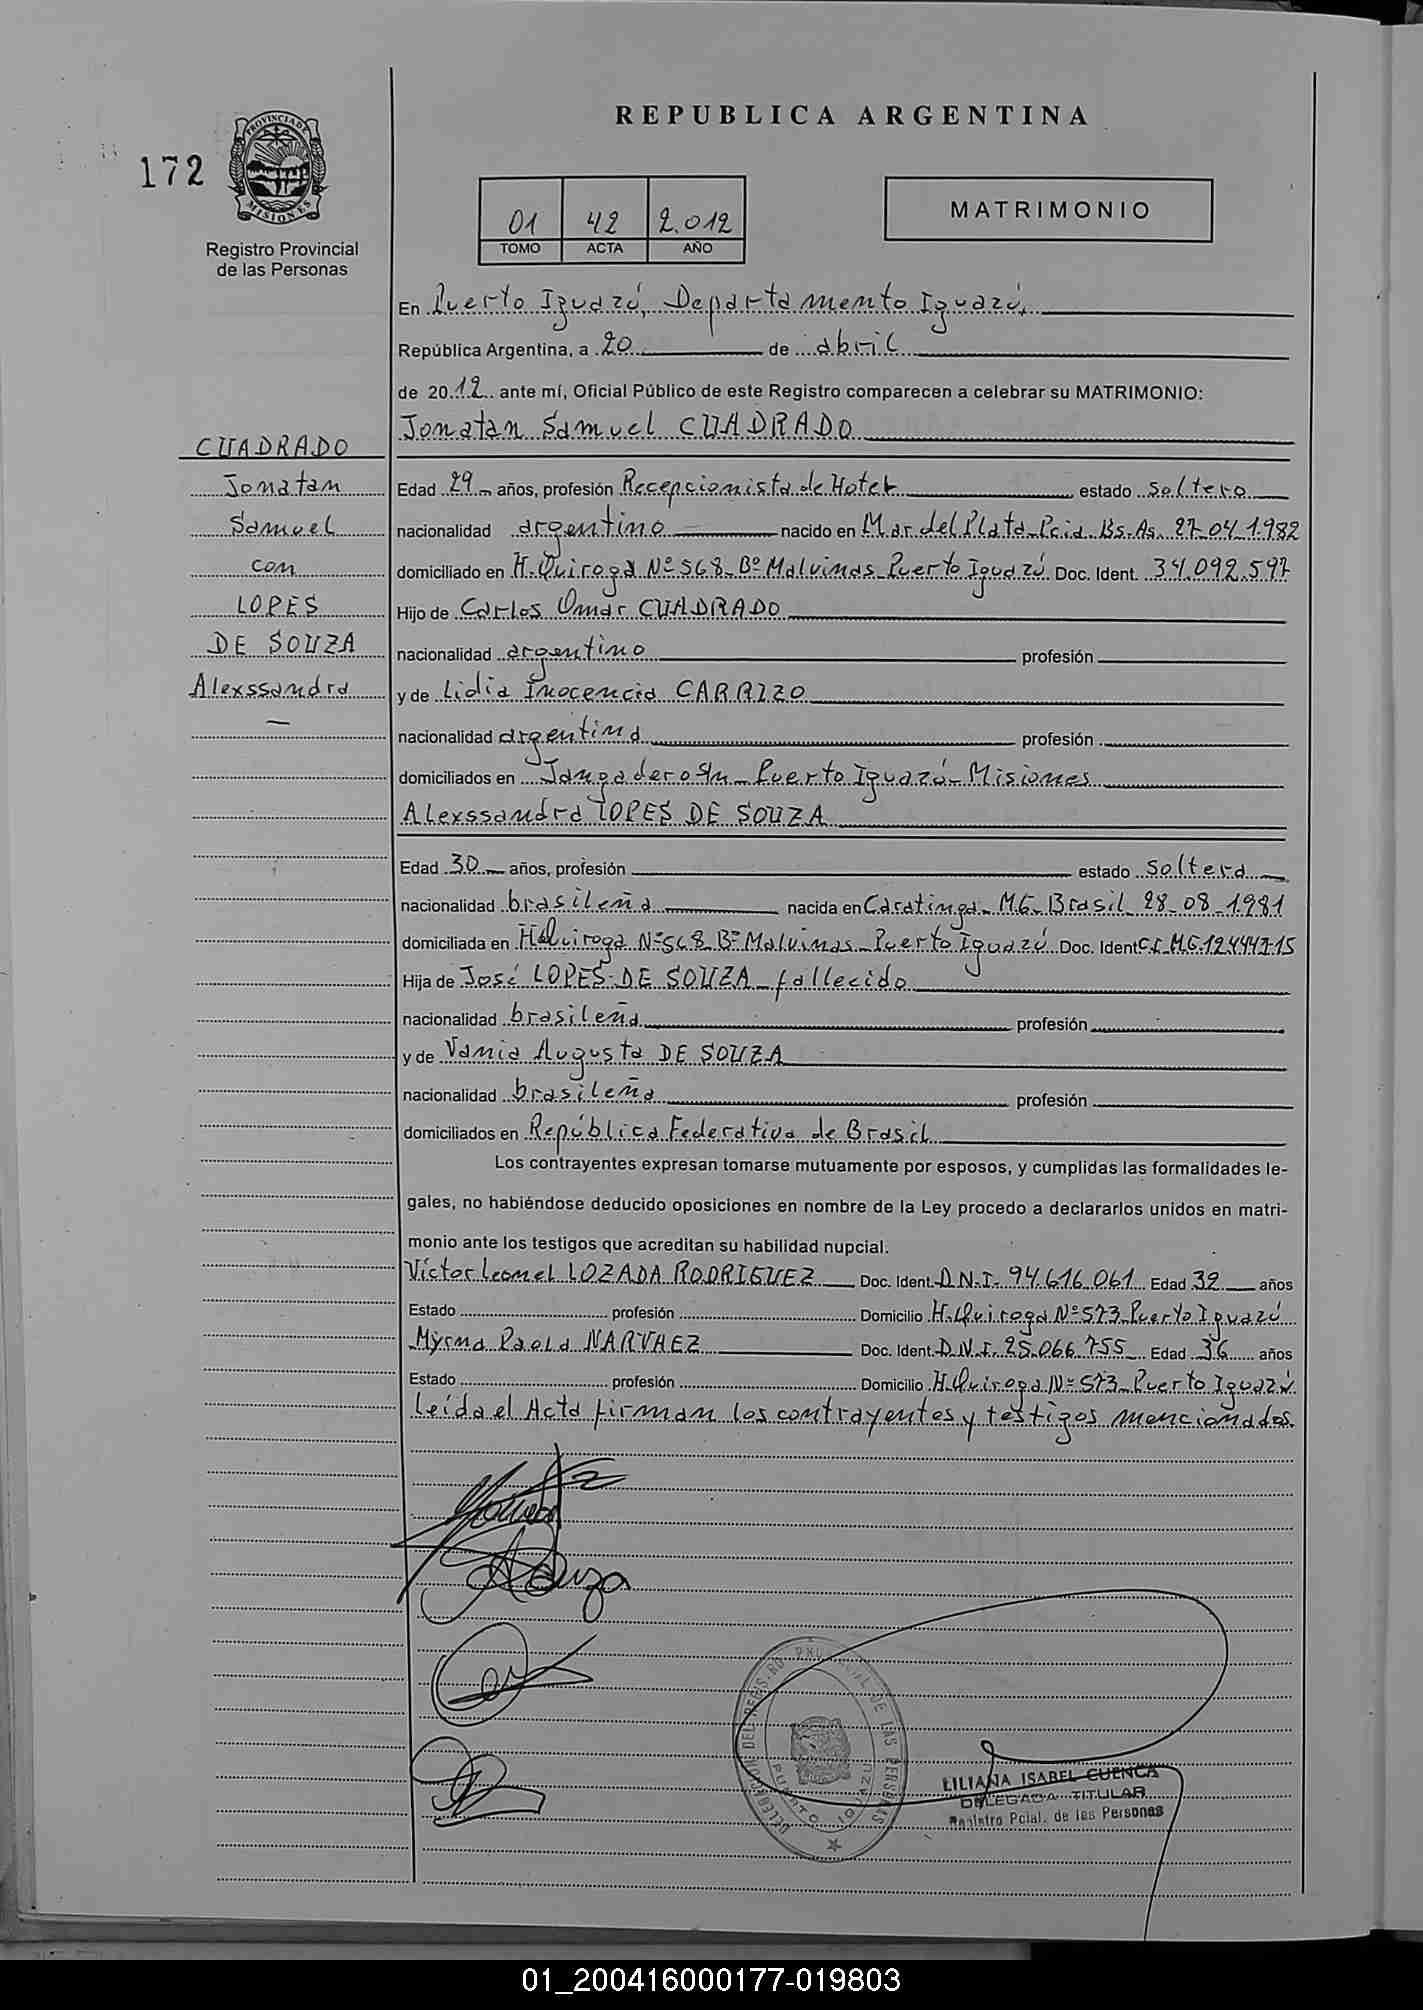 REPUBLICA ARGENTINA
172
PROVINCIA DE
MISIONES
Registro Provincial
de las Personas
01 42 2.012
TOMO ACTA AÑO
MATRIMONIO
En Puerto Iguazú, Departamento Iguazú,
República Argentina, a 20 de abril
de 2012 ante mí, Oficial Público de este Registro comparecen a celebrar su MATRIMONIO:
Jonatan Samuel CUADRADO
CUADRADO
Jonatan
Samuel
con
LOPES
DE SOUZA
Alexssandra
Edad 29 años, profesión Recepcionista de Hotel estado soltero
nacionalidad argentino nacido en Mar del Plata Pcia. Bs. As. 27-04-1982
domiciliado en H. Quiroga Nº 568 Bº Malvinas Puerto Iguazú Doc. Ident. 34.092.597
Hijo de Carlos Omar CUADRADO
nacionalidad argentino profesión
y de Lidia Inocencia CARRIZO
nacionalidad argentina profesión
domiciliados en Jangadero s/n - Puerto Iguazú - Misiones
Alexssandra LOPES DE SOUZA
Edad 30 años, profesión estado soltera
nacionalidad brasileña nacida en Caratinga - MG - Brasil 28-08-1981
domiciliada en H. Quiroga Nº 568 Bº Malvinas Puerto Iguazú Doc. Ident C.I. MG.
Hija de José LOPES DE SOUZA - fallecido
nacionalidad brasileña profesión
y de Vania Augusta DE SOUZA
nacionalidad brasileña profesión
domiciliados en República Federativa de Brasil
Los contrayentes expresan tomarse mutuamente por esposos, y cumplidas las formalidades le-
gales, no habiéndose deducido oposiciones en nombre de la Ley procedo a declararlos unidos en matri-
monio ante los testigos que acreditan su habilidad nupcial.
Víctor Leonel LOZADA RODRIGUEZ Doc. Ident. D.N.I. 94.616.061 Edad 32 años
Estado profesión Domicilio H. Quiroga Nº 573 Puerto Iguazú
Myrna Paola NARVAEZ Doc. Ident. D.N.I. 25.066.755 Edad 36 años
Estado profesión Domicilio H. Quiroga Nº 573 Puerto Iguazú
Leída el Acta firman los contrayentes y testigos mencionados.
DELEGACION DEL REGISTRO PROVINCIAL DE LAS PERSONAS
PUERTO IGUAZU
LILIANA ISABEL CUENCA
DELEGADA TITULAR
Registro Pcial. de las Personas
01_200416000177-019803